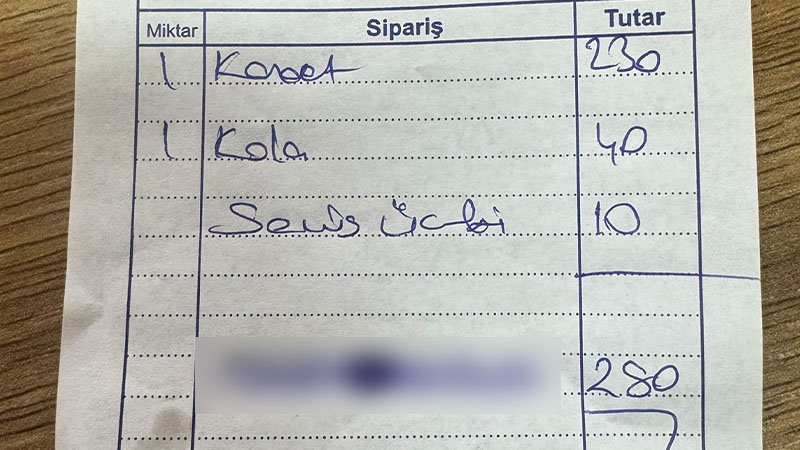 Miktar Sipariş Tutar
1 Kaşet 230
1 Kola 40
Servis ücreti 10
280